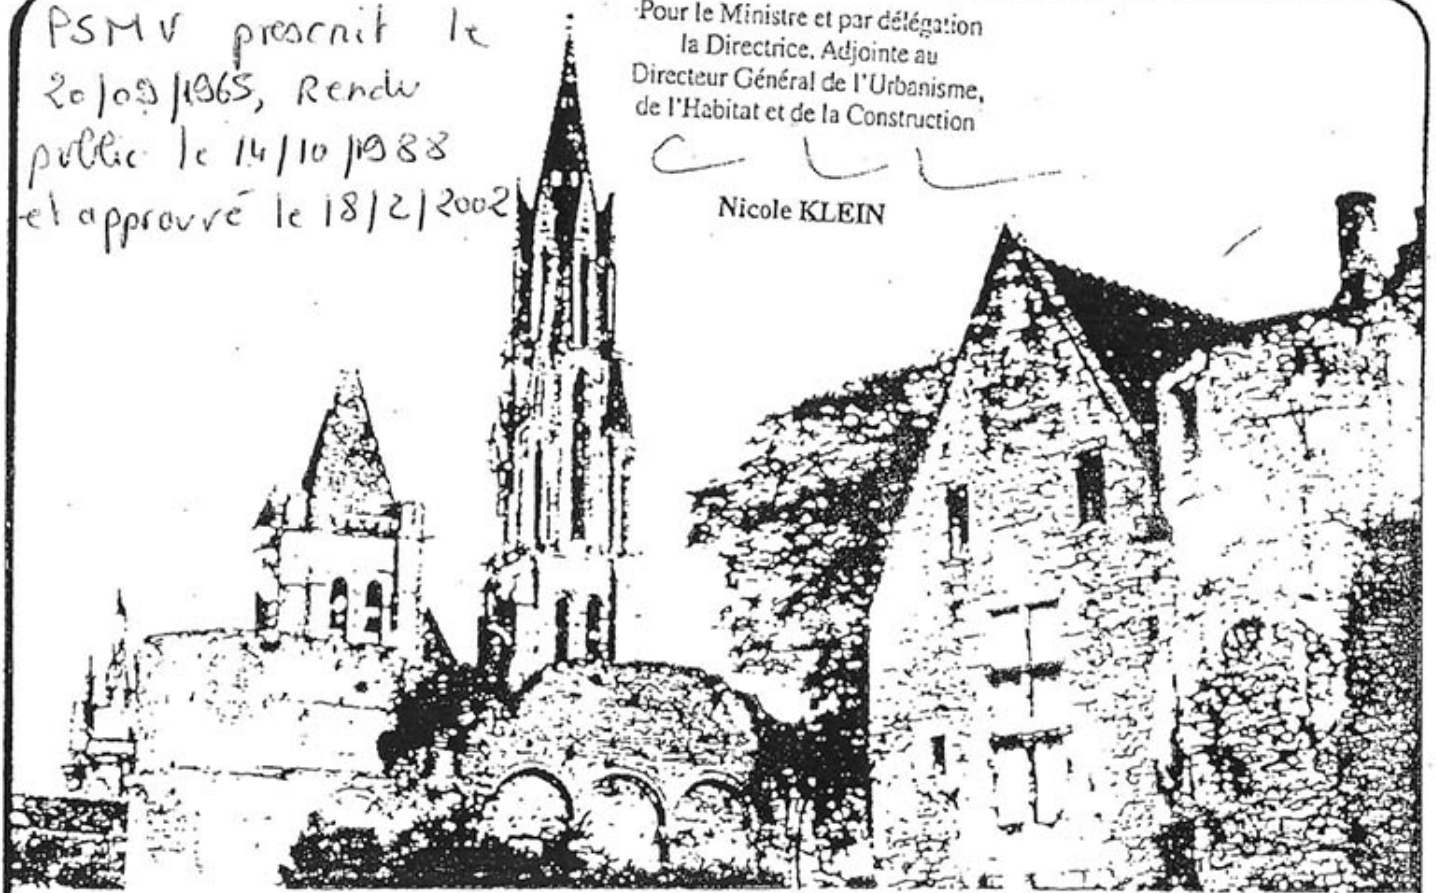 PSMV prescrit le
20/09/1965, Rendu
public le 14/10/1988
et approuvé le 18/2/2002
Pour le Ministre et par délégation
la Directrice, Adjointe au
Directeur Général de l'Urbanisme,
de l'Habitat et de la Construction
Nicole KLEIN